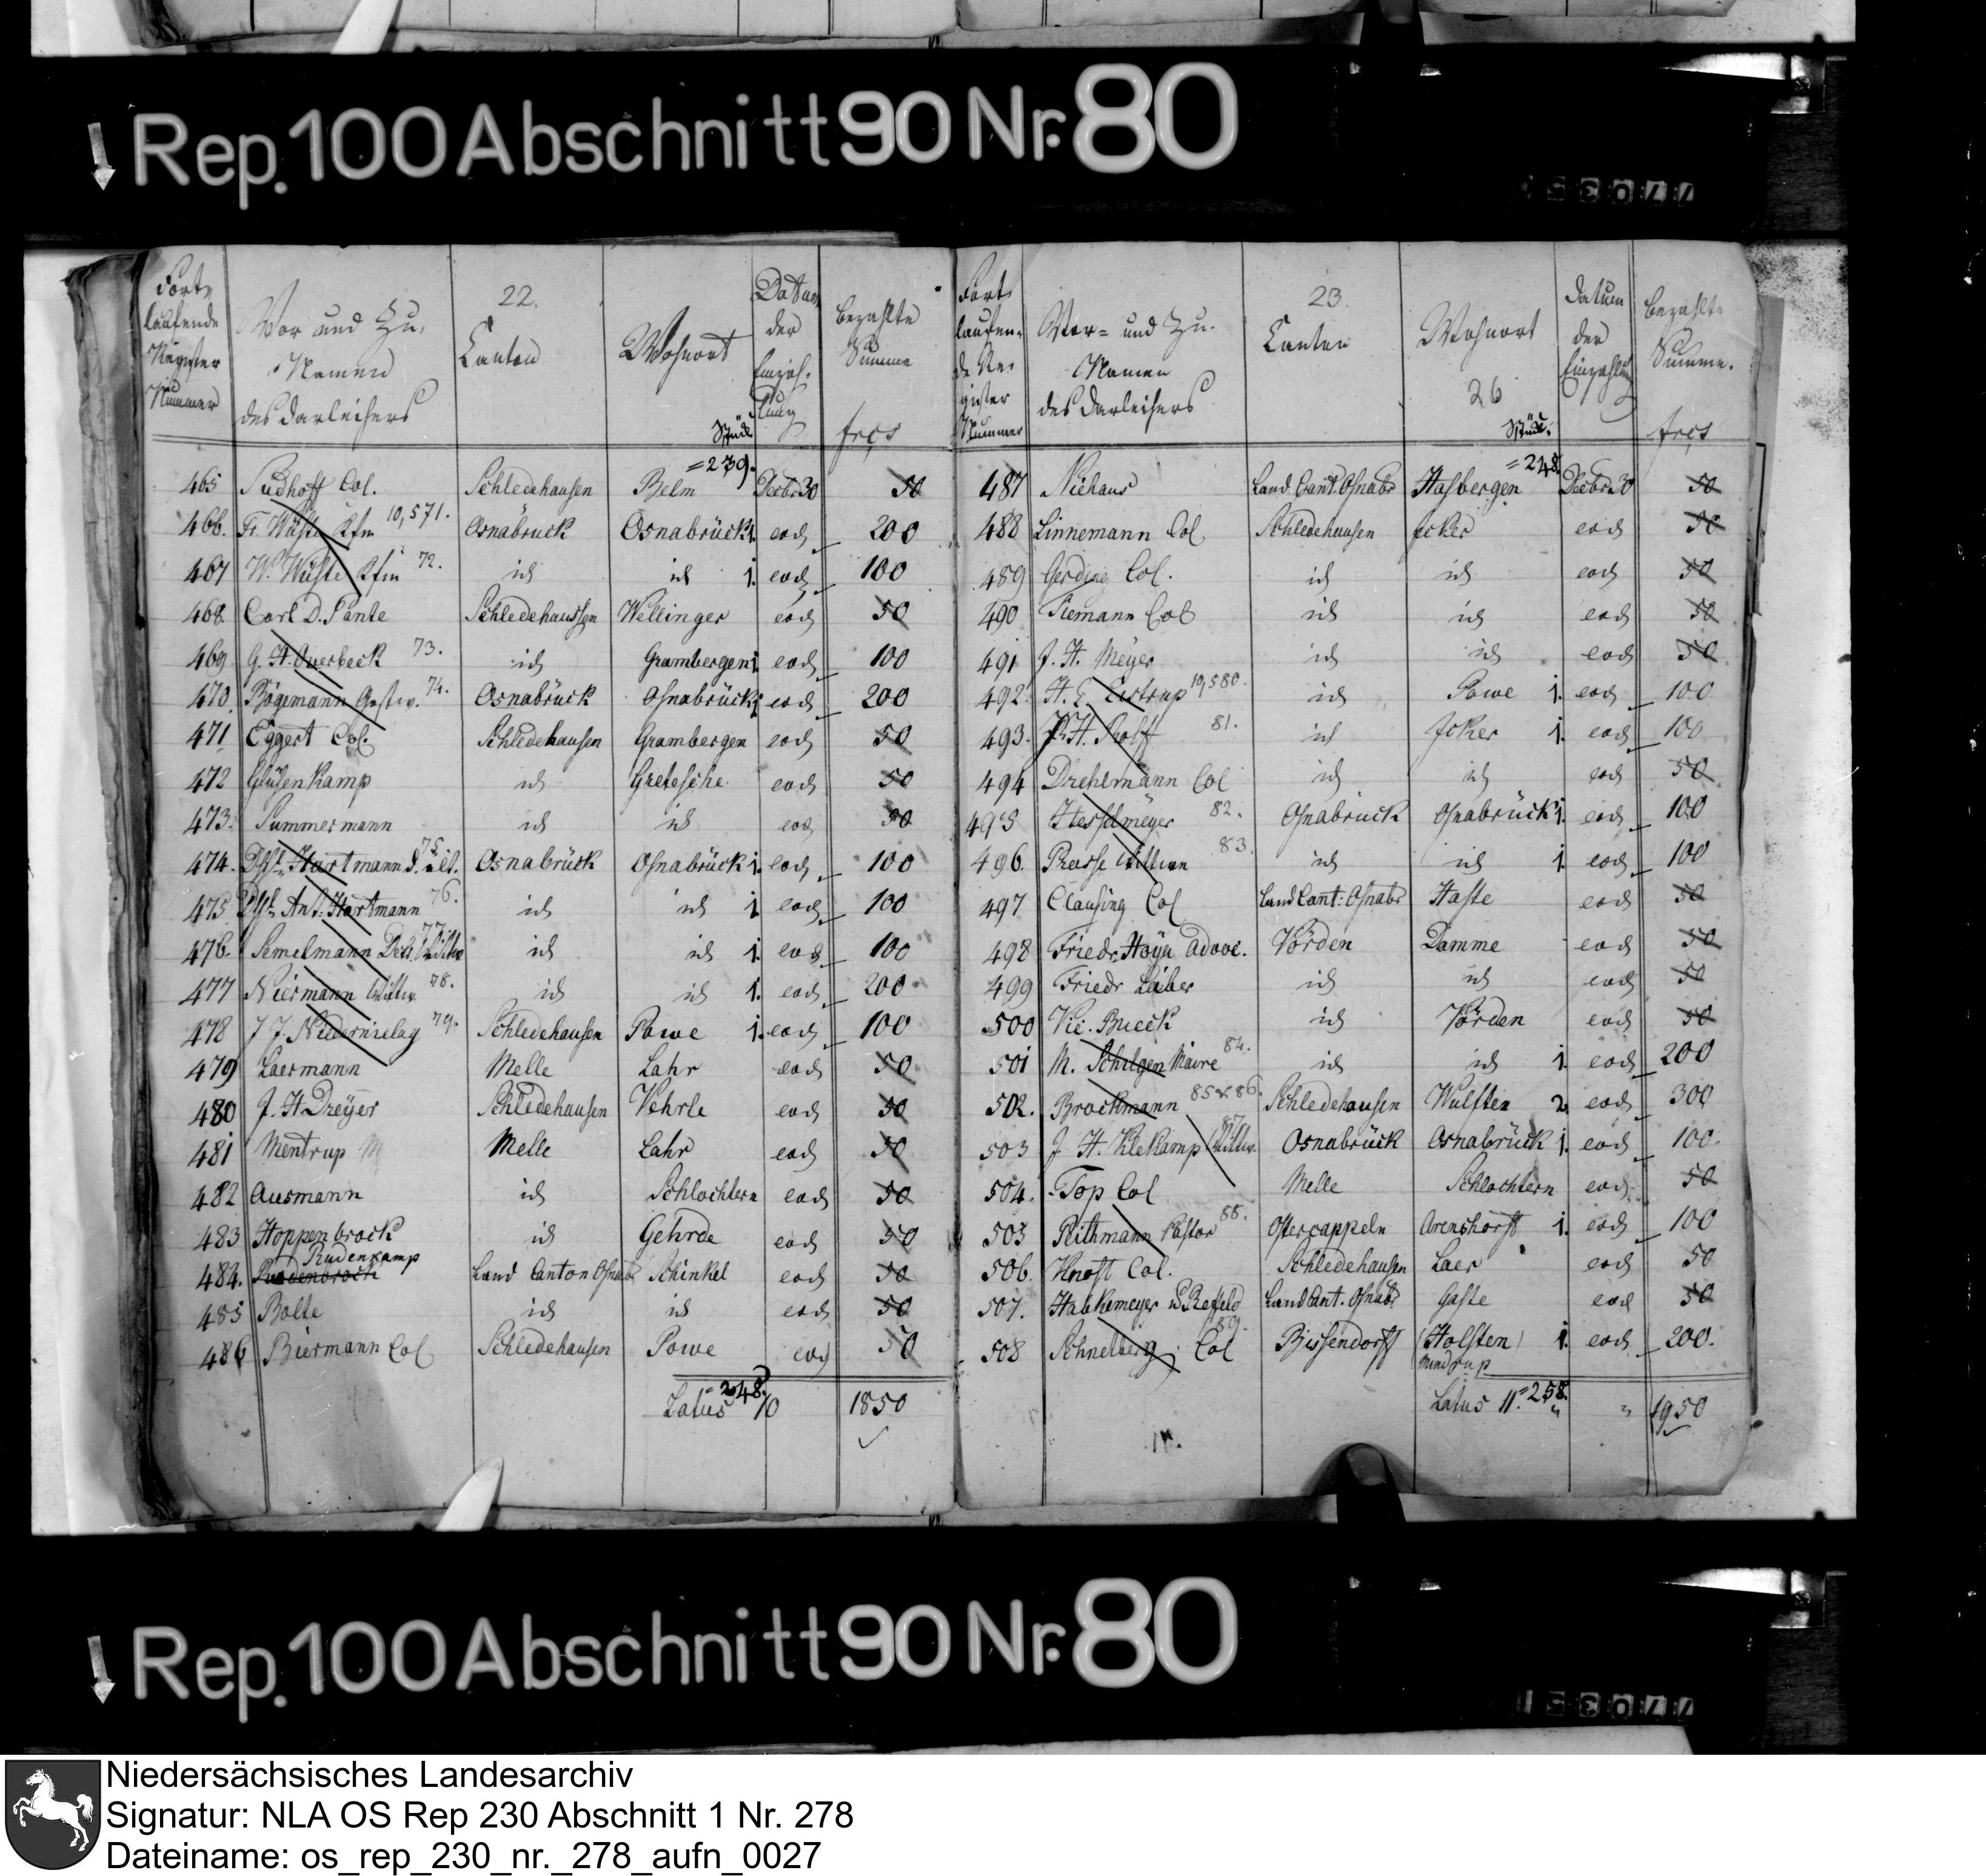 Rep. 100 Abschnitt 90 Nr. 80
Fort- laufende Register Nummer | Vor und Zu- Namen des Darleihers | 22. Canton | Wohnort | Datum der Einzahlung | bezahlte Summe
Stück frcs
465 Sudhoff Col. Schledehausen Belm =239. Decbr 30 50
466. Fr. Wüste Kfm 10,571. Osnabrück Osnabrück 1. eod 200
467 W. Wüste Kfm 72. id id 1. eod 100
468. Carl D. Pante Schledehaussen Wellingen eod 50
469 G. H. Overbeck 73. id Grambergen 1. eod 100
470. Bögemann Gastw. 74. Osnabrück Osnabrück 1. eod 200
471 Eggert Col. Schledehausen Grambergen eod 50
472 Glüsenkamp id Gretesche eod 50
473. Summermann id id eod 50
474. Hartmann d. ält. 75. Osnabrück Osnabrück 1. eod 100
475 Ant. Hartmann 76. id id 1 eod 100
476. Semelmann 77. id id 1. eod 100
477 Niermann Wittw. 78. id id 1. eod 200
478 J J. Niedernielag 79. Schledehausen Powe 1. eod 100
479 Laermann Melle Lahr eod 50
480 J. H Dreÿer Schledehausen Vehrte eod 50
481 Mentrup Melle Lahr eod 50
482 Ausmann id Schlochtern eod 50
483 Hoppenbrock id Gehrde eod 50
Rudenkamp
484. Land Canton Osnabr Schinkel eod 50
485 Bolte id id eod 50
486 Biermann Col Schledehausen Powe eod 50
=248.
Latus 10 1850
Fort- laufen- de Re- gister Nummer | Vor- und Zu- Namen des Darleihers | 23. Canton | Wohnort 26 | Datum der Einzahlung | bezahlte Summe.
Stück. frcs
487 Niehaus Land Cant. Osnabr Hasbergen =248. Decbr 30 50
488 Linnemann Col Schledehausen Jcker eod 50
489 Gerding Col. id id eod 50
490 Tiemann Col id id eod 50
491 J. H. Meÿer id id eod 50
492. H. E. Eistrup 10,580. id Powe 1. eod 100
493. H. Rolf 81. id Jcker 1. eod 100
494 Drehlmann Col id id eod 50
495 Hesselmeyer 82. Osnabrück Osnabrück 1. eod 100
496. Prasse Wittwe 83. id id 1. eod 100
497 Clausing Col Land Cant: Osnabr Haste eod 50
498 Friedr. Hoya Advoc. Vörden Damme eod 50
499 Friedr Laiber id id eod 50
500 Vic. Bueck id Vörden eod 50
501 M. Schilgen Maire 84. id id 1. eod 200
502. Brockmann 85 & 86. Schledehausen Wulften 2. eod 300
503 J. H. Klekamp Wittw. 87. Osnabrück Osnabrück 1. eod 100.
504. Top Col Melle Schlochtern eod. 50
505 Rithmann Pastor 88. Ostercappeln Arenshorst 1. eod 100
506. Col. Schledehausen Laer eod 50
507. Hackemeyer Land Cant. Osnabr Gaste eod 50
508 Schneberg Col 89. Bissendorff (Holsten) 1. eod 200.
Mündrup
Latus 11. =258. " " 1950
Rep. 100 Abschnitt 90 Nr. 80
Niedersächsisches Landesarchiv
Signatur: NLA OS Rep 230 Abschnitt 1 Nr. 278
Dateiname: os_rep_230_nr._278_aufn_0027